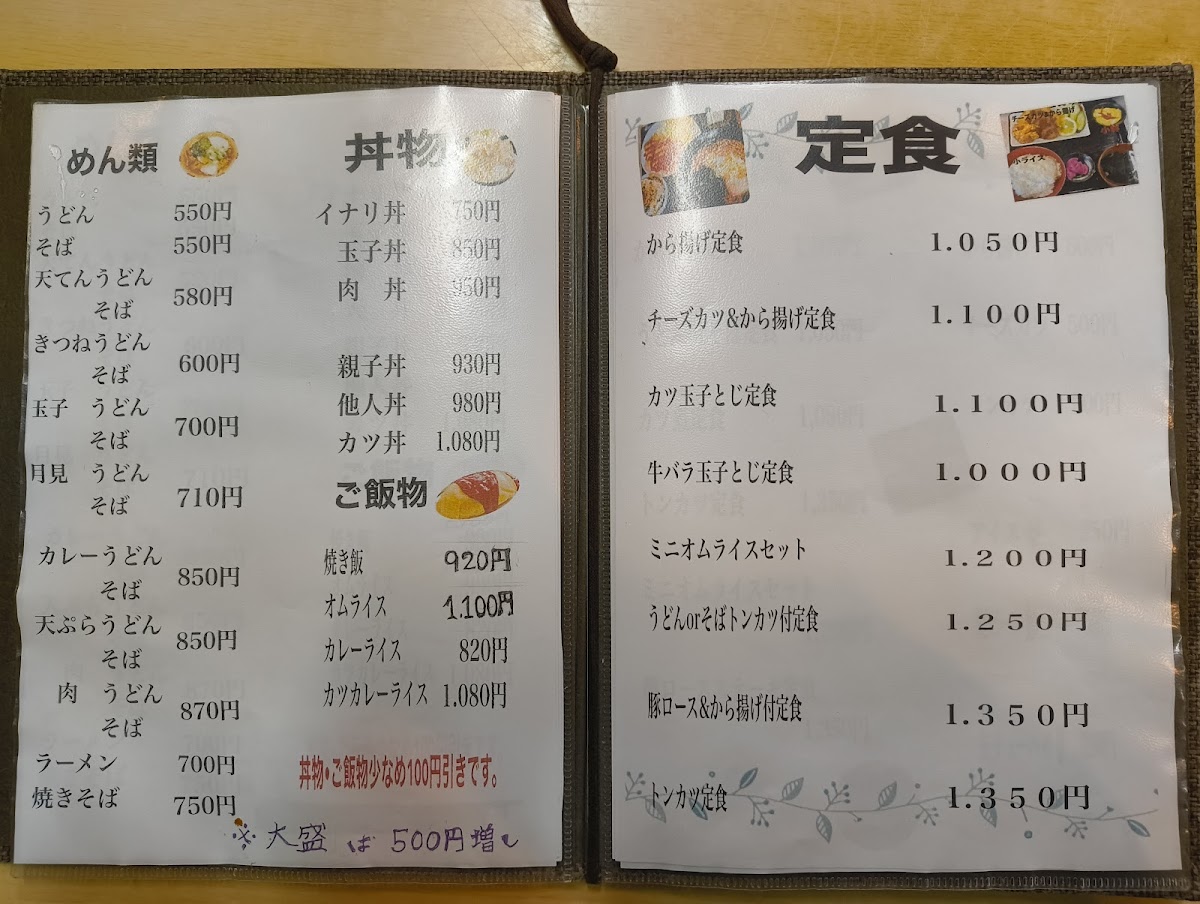 めん類
うどん 550円
そば 550円
天てんうどん
そば 580円
きつねうどん
そば 600円
玉子 うどん
そば 700円
月見 うどん
そば 710円
カレーうどん
そば 850円
天ぷらうどん
そば 850円
肉 うどん
そば 870円
ラーメン 700円
焼きそば 750円
丼物
イナリ丼 750円
玉子丼 850円
肉 丼 950円
親子丼 930円
他人丼 980円
カツ丼 1.080円
ご飯物
焼き飯 920円
オムライス 1.100円
カレーライス 820円
カツカレーライス 1.080円
丼物・ご飯物少なめ100円引きです。
※大盛 は 500円増し
定食
チーズカツ&から揚げ
から揚げ定食 1.050円
チーズカツ&から揚げ定食 1.100円
カツ玉子とじ定食 1.100円
牛バラ玉子とじ定食 1.000円
ミニオムライスセット 1.200円
うどんorそばトンカツ付定食 1.250円
豚ロース&から揚げ付定食 1.350円
トンカツ定食 1.350円